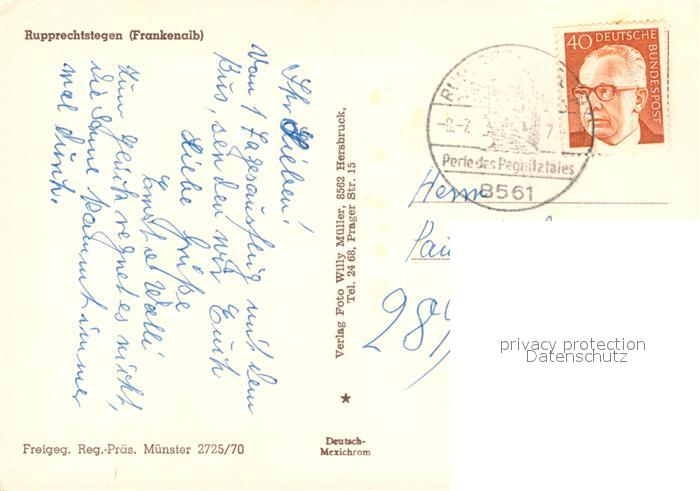 Rupprechtstegen (Frankenalb)
Ihr Lieben!
Vom 1 Tagesausflug mit dem
Bus, senden wir Euch
Liebe Grüße
Ernst u Walli
Zum Glück regnet es nicht,
die Sonne kommt immer
mal durch.
Freigeg. Reg.-Präs. Münster 2725/70
Verlag Foto Willy Müller, 8562 Hersbruck,
Tel. 24 68, Prager Str. 15
Deutsch-
Mexichrom
40 DEUTSCHE
BUNDESPOST
-8.-7.
Perle des Pegnitztales
8561
Herrn
Pau
privacy protection
Datenschutz